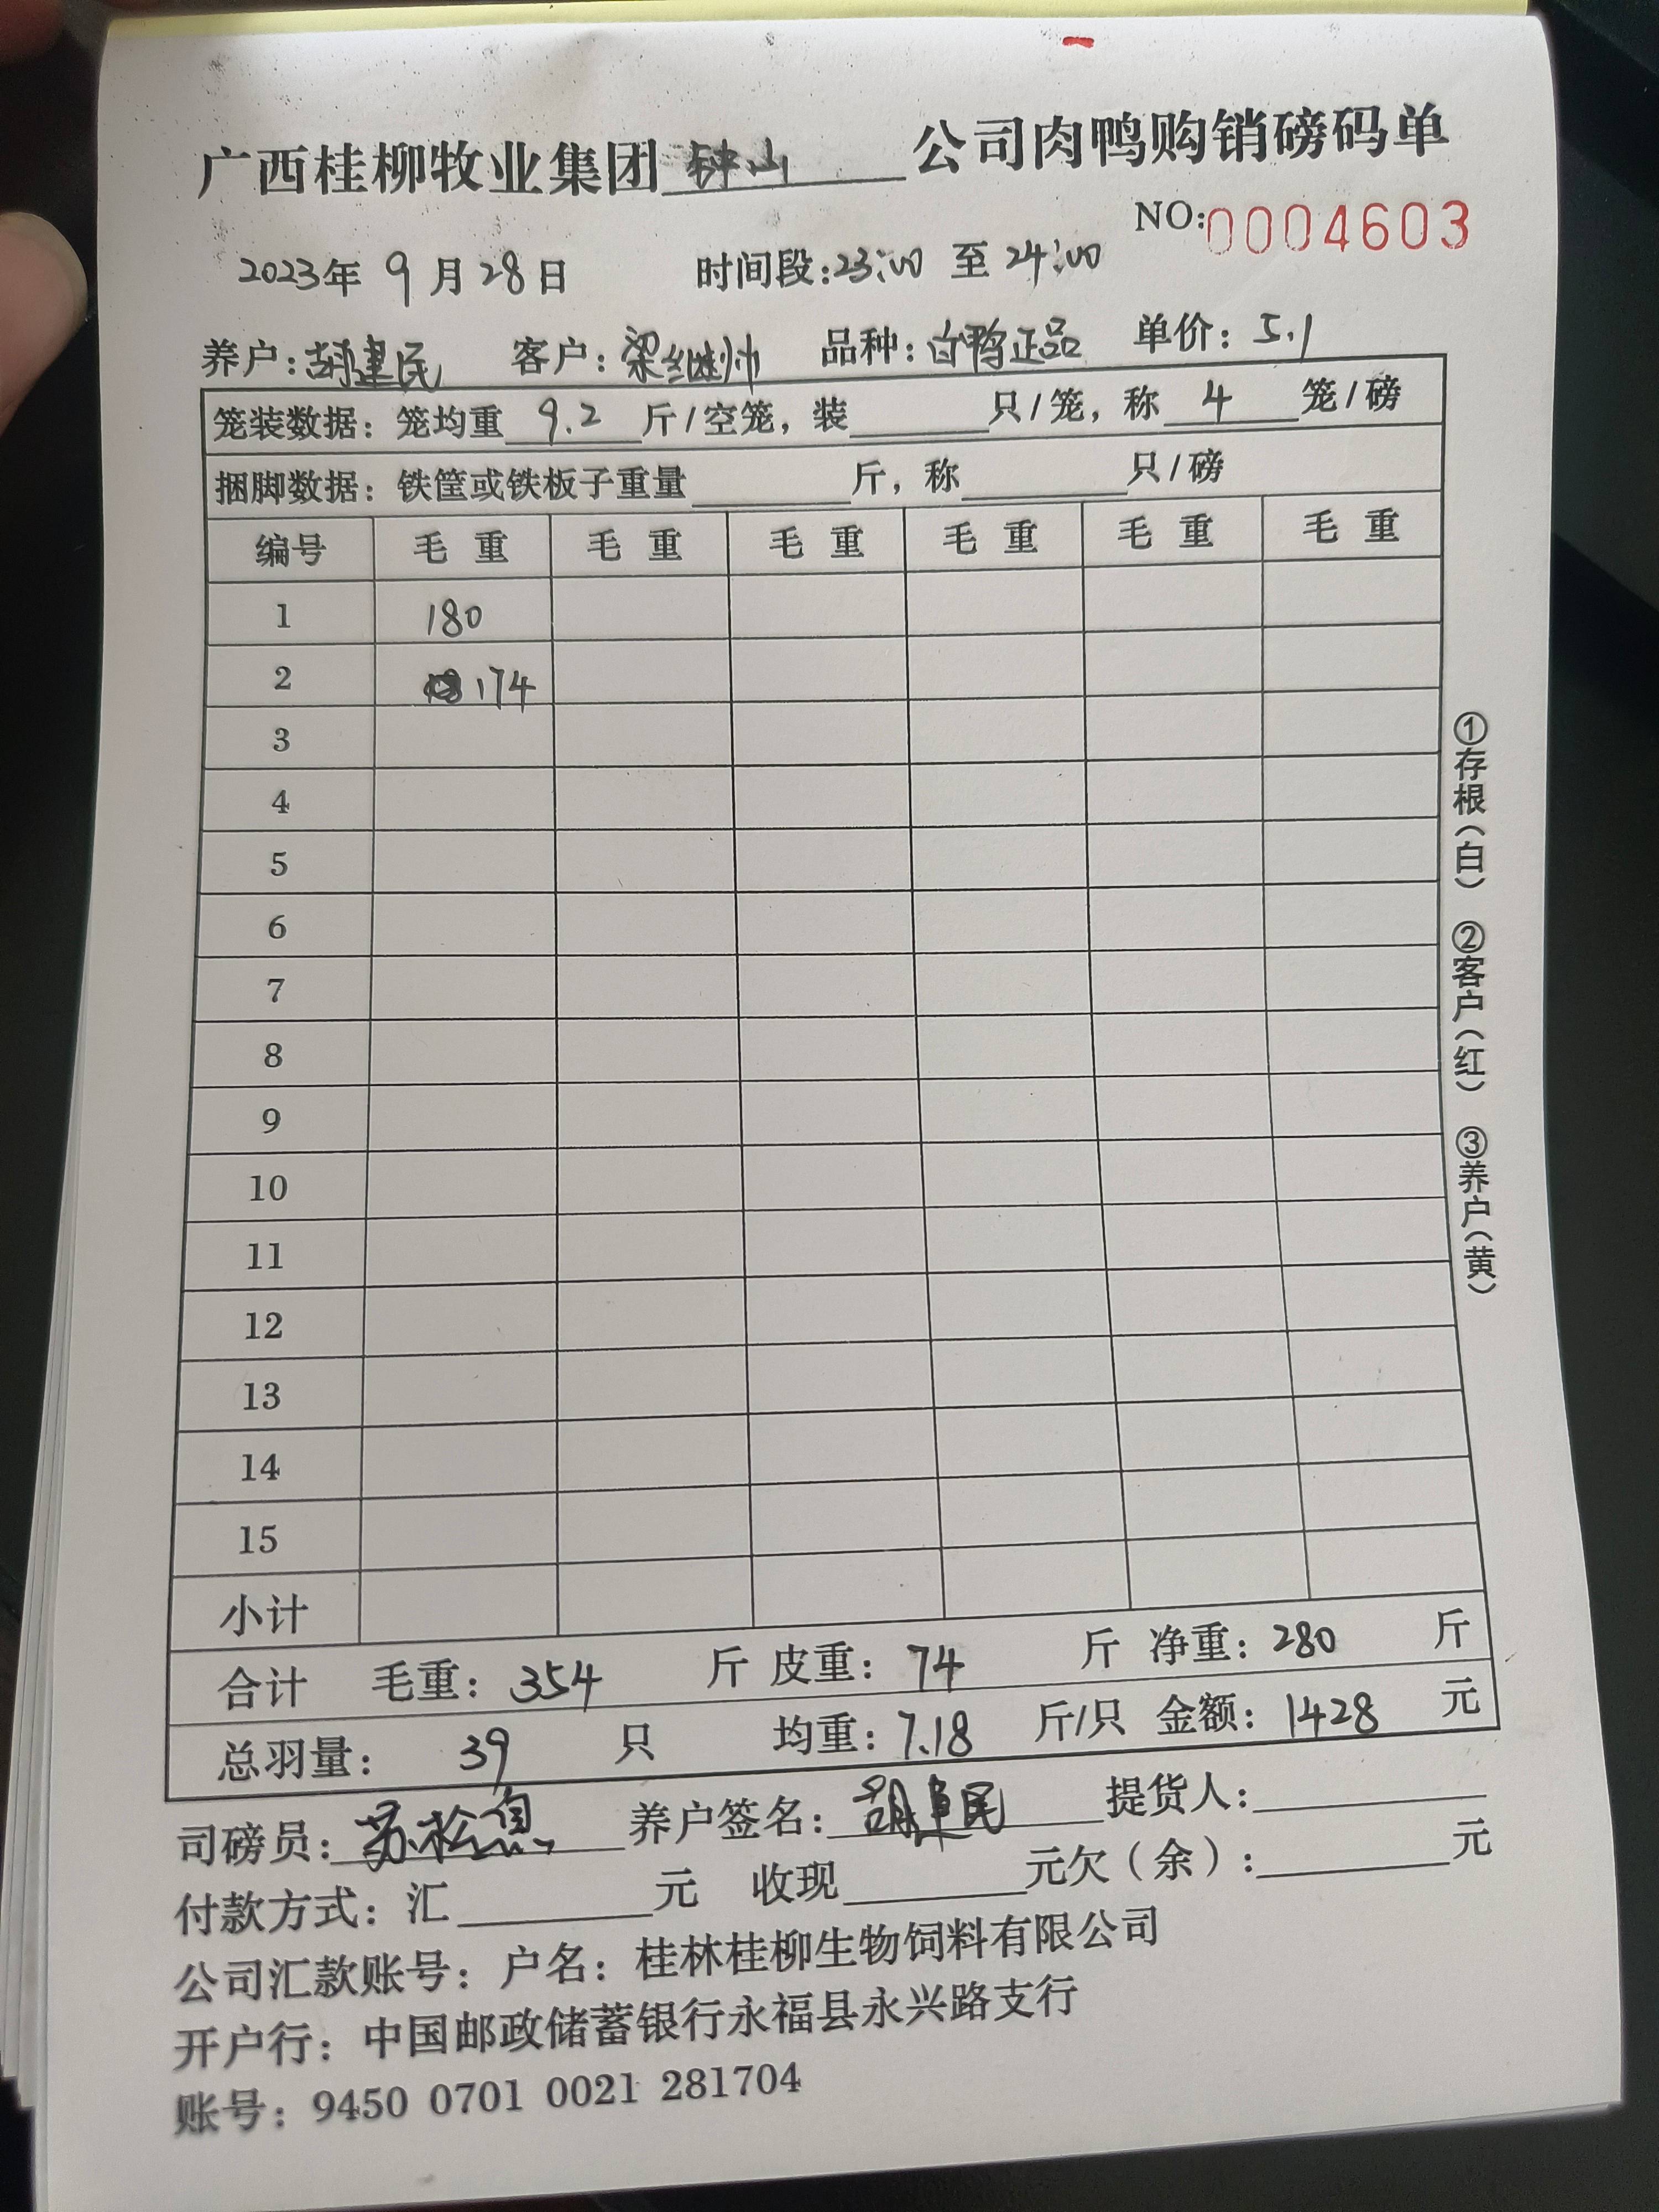 广西桂柳牧业集团钟山公司肉鸭购销磅码单
NO:0004603
2023年 9月28日 时间段:23:00 至 24:00
养户:胡建民 客户:梁继帅 品种:白鸭正品 单价:5.1
笼装数据:笼均重 9.2 斤/空笼,装 只/笼,称 4 笼/磅
捆脚数据:铁筐或铁板子重量 斤,称 只/磅
编号 毛重 毛重 毛重 毛重 毛重 毛重
1 180
2 174
3
4
5
6
7
8
9
10
11
12
13
14
15
小计
合计 毛重:354 斤 皮重:74 斤 净重:280 斤
总羽量:39 只 均重:7.18 斤/只 金额:1428 元
司磅员:苏松 养户签名:胡建民 提货人:
付款方式:汇 元 收现 元欠(余): 元
公司汇款账号:户名:桂林桂柳生物饲料有限公司
开户行:中国邮政储蓄银行永福县永兴路支行
账号:9450 0701 0021 281704
①存根(白) ②客户(红) ③养户(黄)